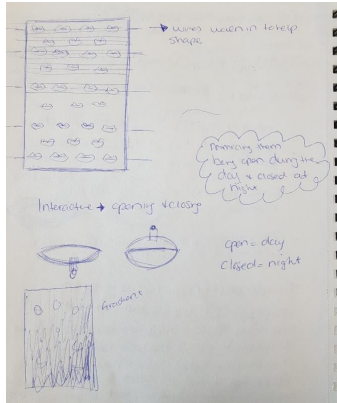 → wires woven in to keep
shape
mimicing them
being open during the
day & closed at
night
Interactive → opening & closing
open = day
closed = night
Gradient